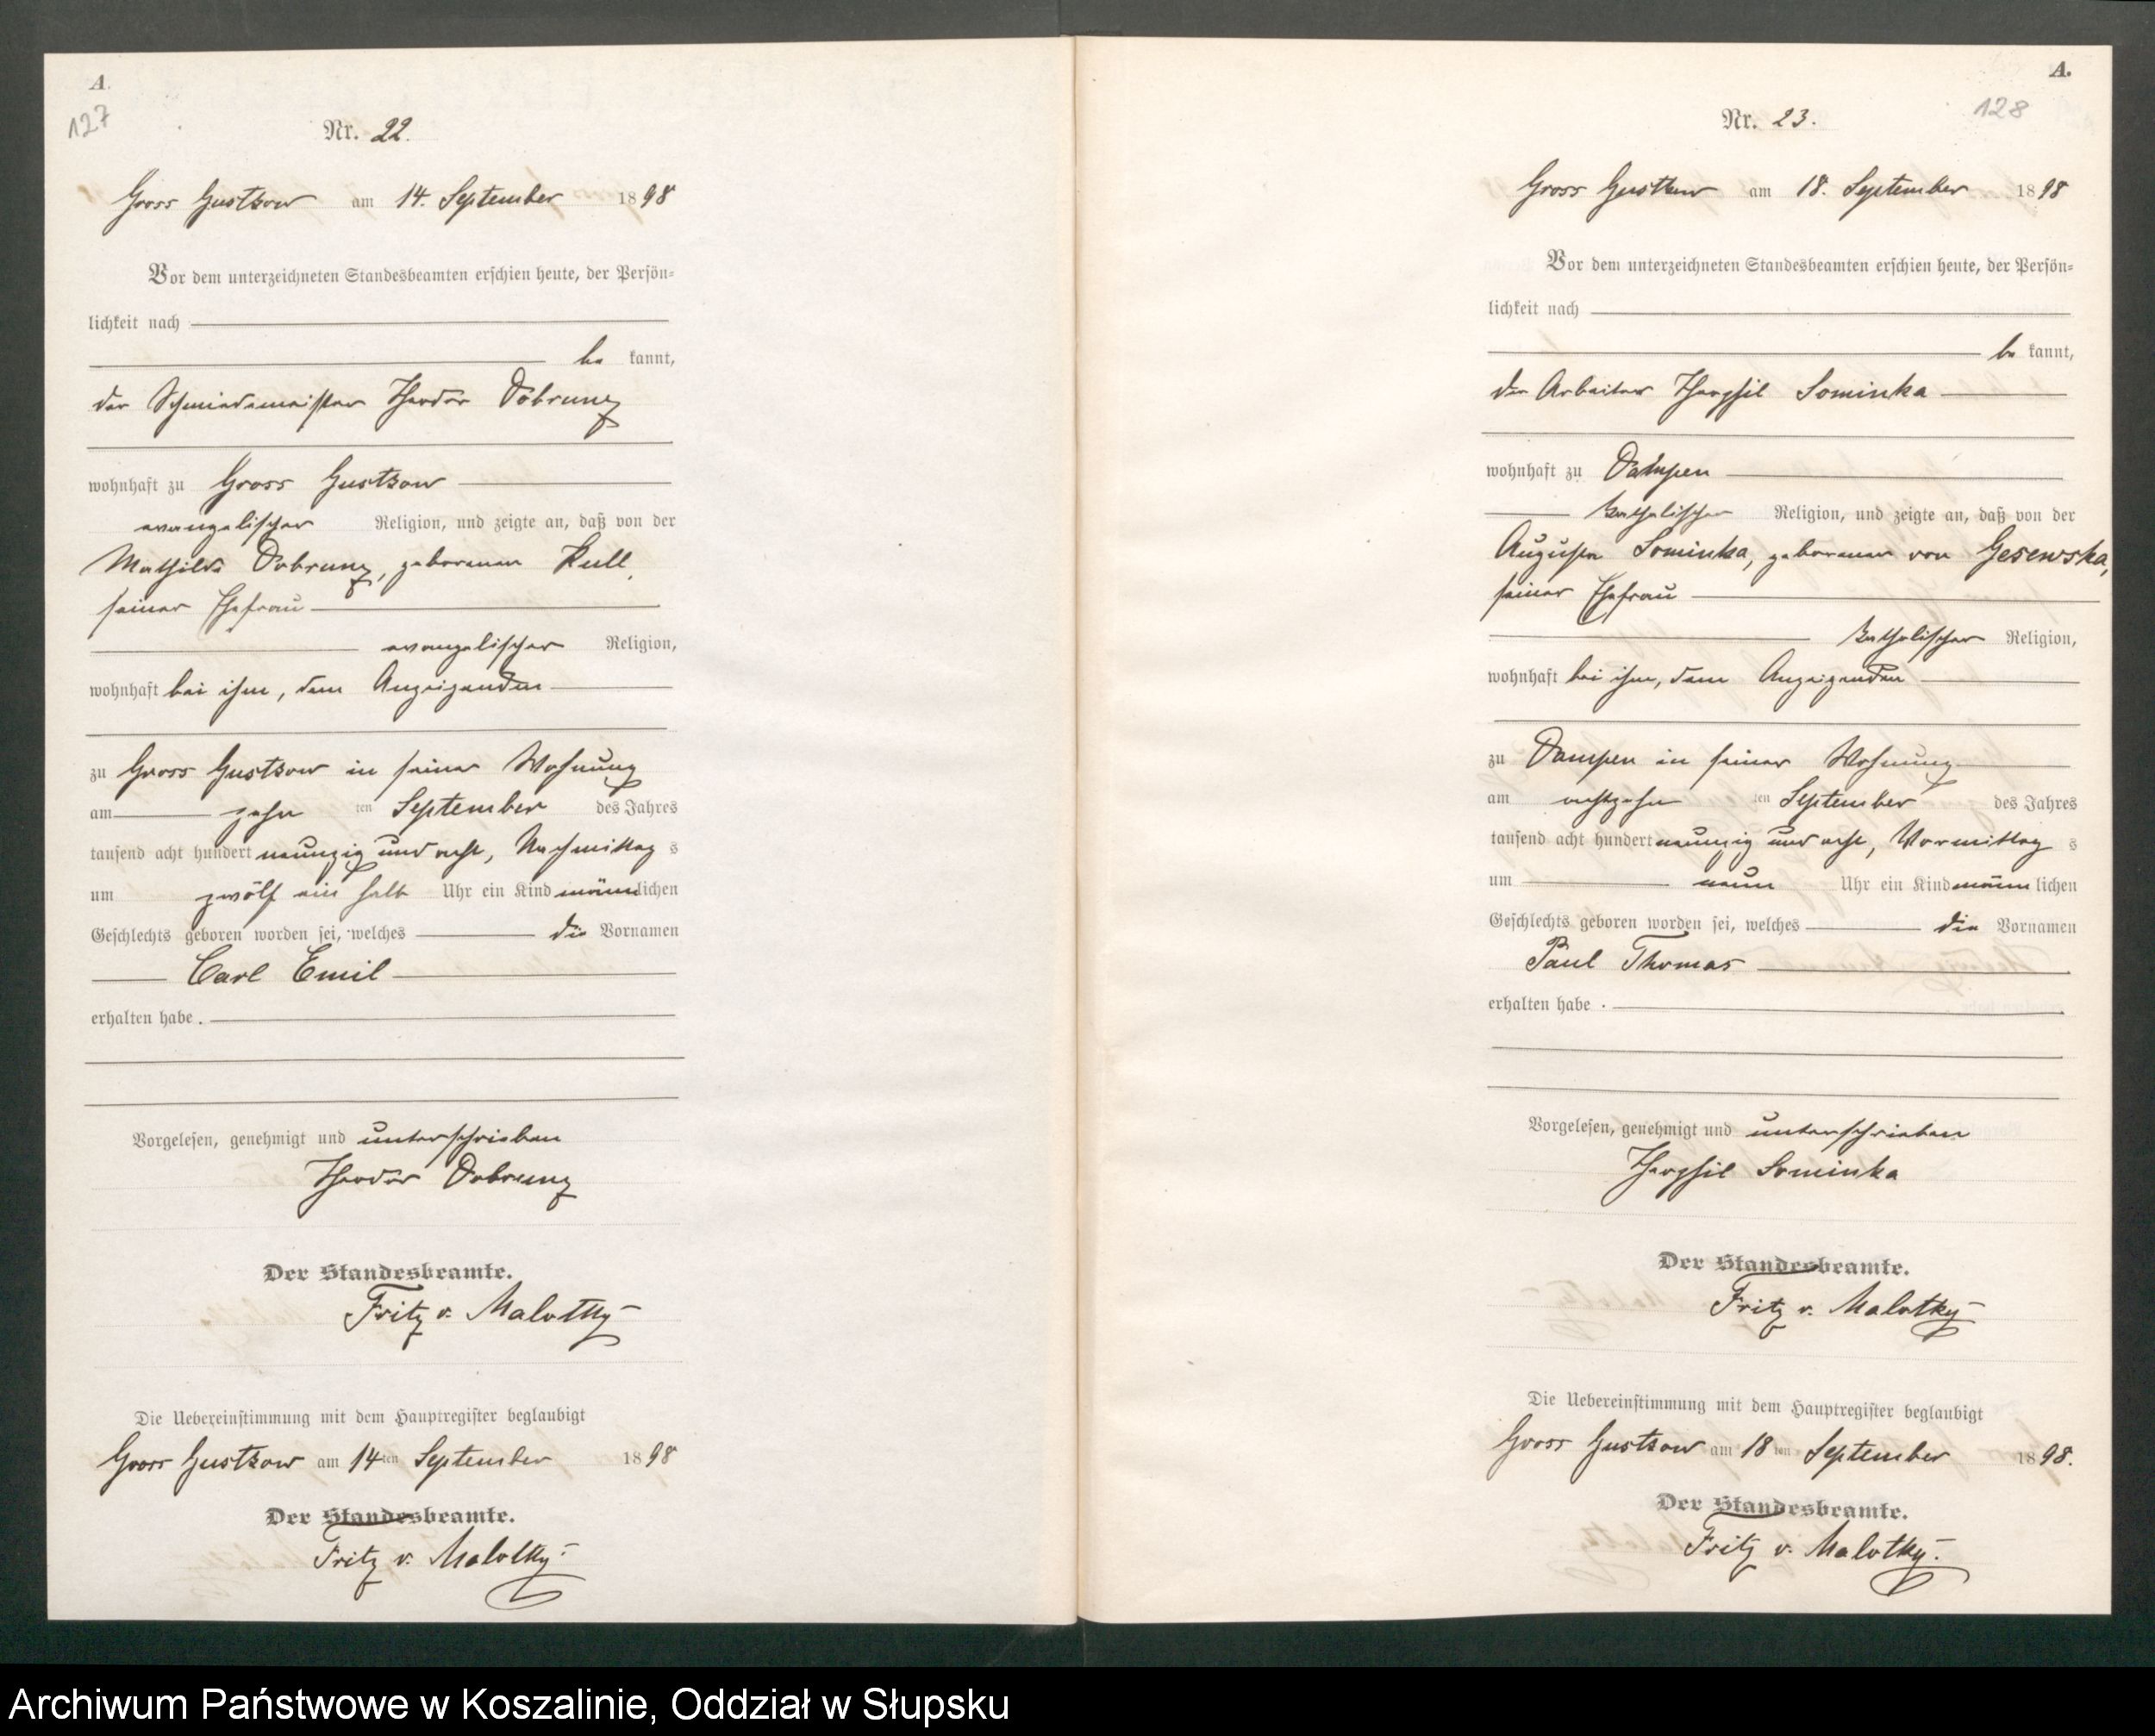 A
127
Nr. 22.
Gross Gustkow am 14. September 1898
Vor dem unterzeichneten Standesbeamten erschien heute, der Persön-
lichkeit nach
be kannt,
der Schmiedemeister Theodor Dobrunz
wohnhaft zu Gross Gustkow
evangelischer Religion, und zeigte an, daß von der
Mathilde Dobrunz, geborenen Kull,
seiner Ehefrau
evangelischer Religion,
wohnhaft bei ihm, dem Anzeigenden
zu Gross Gustkow in seiner Wohnung
am zehn ten September des Jahres
tausend acht hundert neunzig und acht, Nachmittag s
um zwölf ein halb Uhr ein Kind männlichen
Geschlechts geboren worden sei, welches die Vornamen
Carl Emil
erhalten habe.
Vorgelesen, genehmigt und unterschrieben
Theodor Dobrunz
Der Standesbeamte.
Fritz v. Malottky
Die Uebereinstimmung mit dem Hauptregister beglaubigt
Gross Gustkow am 14ten September 1898
Der Standesbeamte.
Fritz v. Malottky.
A.
128
Nr. 23.
Gross Gustkow am 18. September 1898
Vor dem unterzeichneten Standesbeamten erschien heute, der Persön-
lichkeit nach
be kannt,
der Arbeiter Theophil Sominka
wohnhaft zu Dampen
katholischer Religion, und zeigte an, daß von der
Auguste Sominka, geborenen von Gesewska,
seiner Ehefrau
katholischer Religion,
wohnhaft bei ihm, dem Anzeigenden
zu Dampen in seiner Wohnung
am achtzehn ten September des Jahres
tausend acht hundert neunzig und acht, Vormittag s
um neun Uhr ein Kind männlichen
Geschlechts geboren worden sei, welches die Vornamen
Paul Thomas
erhalten habe.
Vorgelesen, genehmigt und unterschrieben
Theophil Sominka
Der Standesbeamte.
Fritz v. Malottky
Die Uebereinstimmung mit dem Hauptregister beglaubigt
Gross Gustkow am 18ten September 1898.
Der Standesbeamte.
Fritz v. Malottky.
Archiwum Państwowe w Koszalinie, Oddział w Słupsku